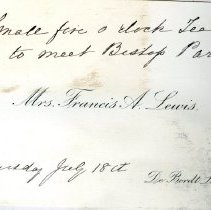 Small five o'clock Tea
to meet Bishop Par
Mrs. Francis A. Lewis.
uesday July 18th